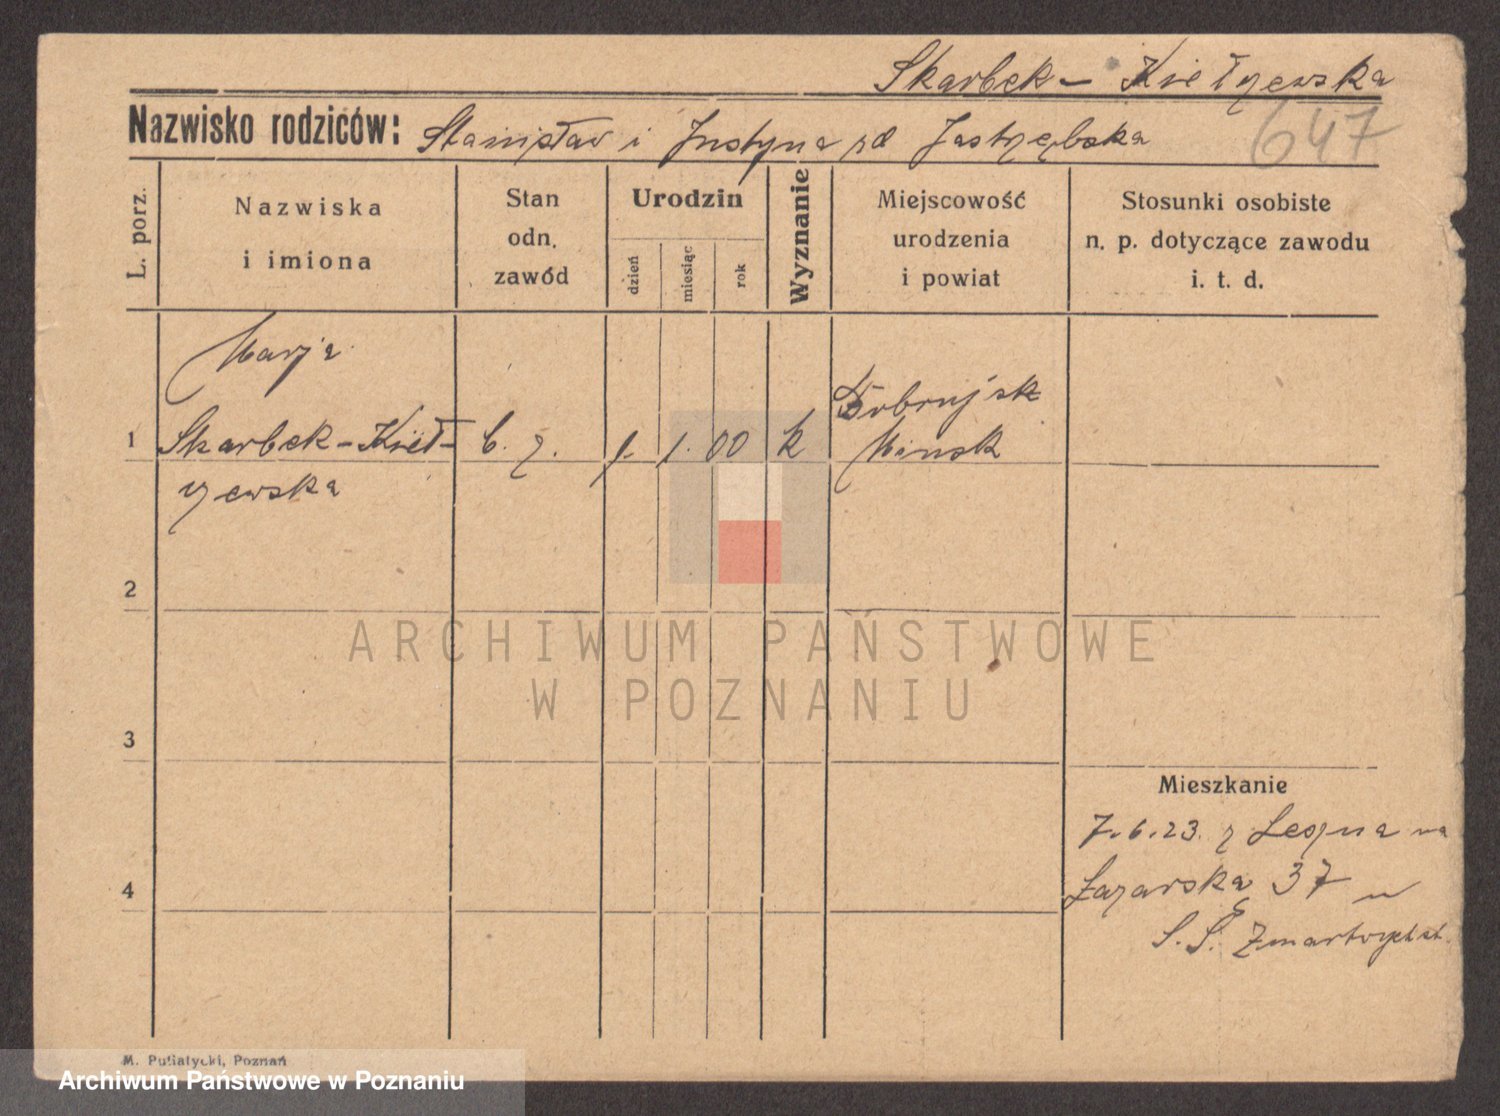 Skarbek- Kiełzewska
Nazwisko rodziców: Stanisław i Justyna zd Jastrzębska
647
L. porz.
Nazwiska
i imiona
Stan
odn.
zawód
Urodzin
dzień
miesiąc
rok
Wyznanie
Miejscowość
urodzenia
i powiat
Stosunki osobiste
n. p. dotyczące zawodu
i. t. d.
Marja
1 Skarbek-Kieł-
zewska
b. z.
1. 1. 00 k
Bobrujsk
Minsk
2
3
4
Mieszkanie
7.6.23. z Leszna na
Łazarska 37 u
S.S. Zmartwychst.
M. Putiatycki, Poznań
ARCHIWUM PAŃSTWOWE
W POZNANIU
Archiwum Państwowe w Poznaniu